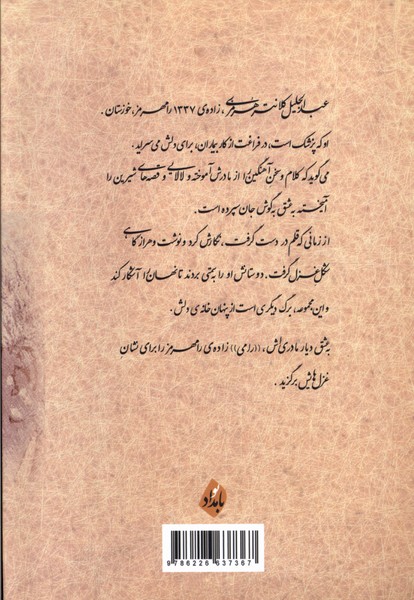 عبدالجلیل کلانتر هرمزی، زاده‌ی ۱۳۳۷ رامهرمز، خوزستان.
او که پزشک است، در فراغت از کار بیماران، برای دلش می‌سراید.
می‌گوید که کلام و سخن آهنگین را از مادرش آموخته و لالایی و قصه‌های شیرین را
آمیخته به عشق به گوش جان سپرده است.
از زمانی که قلم در دست گرفت، نگارش کرد و نوشت و هر از گاهی
شکل غزل گرفت. دوستانش او را به سعی بردند تا نهان را آشکار کند
و این مجموعه، برگ دیگری است از پنهان خانه‌ی دلش.
به عشق دیار مادری‌اش، ((رامی)) زاده‌ی رامهرمز را برای نشان
غزل‌هایش برگزید.
بامداد نو
9786226637367